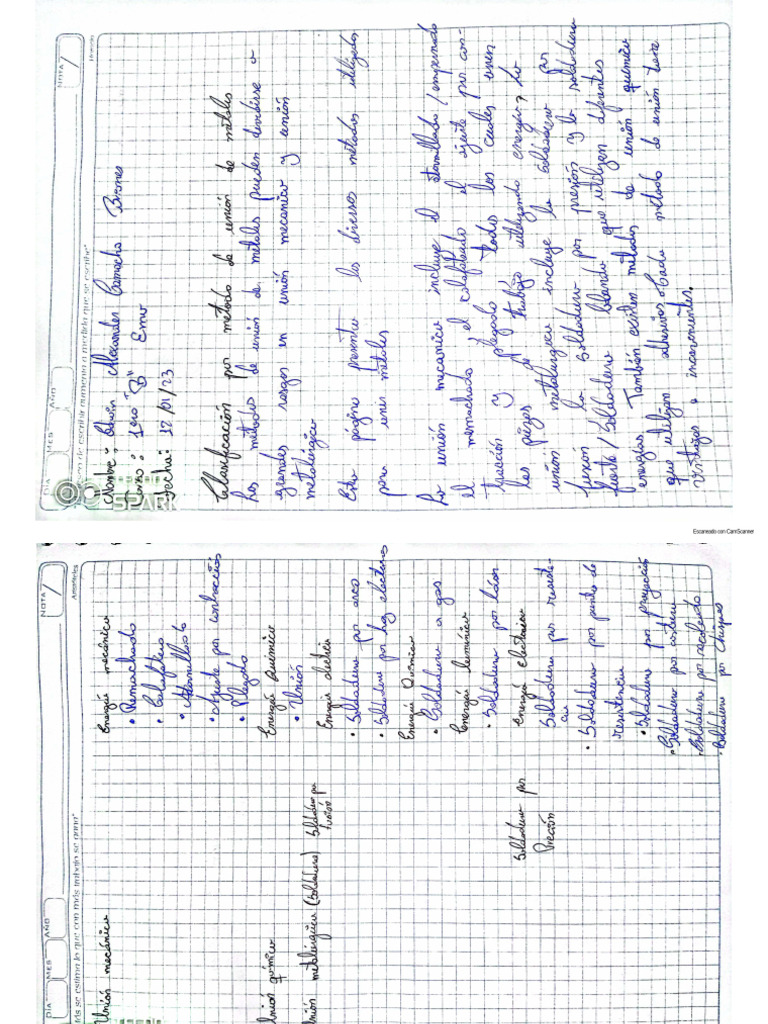 DIA MES AÑO NOTA
"El deseo de escribir aumenta a medida que se escribe"
Nombre: Edwin Alexander Camacho Briones
Curso: 1ero "B" Emv
Fecha: 12/01/23
Clasificación por método de unión de métales
Los métodos de unión de metales pueden dividirse a
grandes rasgos en unión mecánica y unión
metalúrgica
Esta página presenta los diversos métodos utilizados
para unir metales
La unión mecanica incluye el atornillado/empernado
el remachado el calafateado el ajuste por con-
tracción y plegado todos los cuales unen
las piezas de trabajo utilizando energía, la
unión metalurgica incluye la soldadura por
fusión la soldadura por presión y la soldadura
fuerte/soldadura blanda que utilizan diferentes
energías También existen métodos de unión químico
que utilizan adhesivos Cada método de unión tiene
ventajas e inconvenientes.
Escaneado con CamScanner
DIA MES AÑO NOTA
Más se estima lo que con más trabajo se gana"
Unión mecánica Energía mecánica
• Remachado
• Calafateo
• Atornillado
• Ajuste por contracción
• Plegado
Unión química Energía Química
• Unión
Unión metalúrgica (Soldadura) Soldadura por fusión Energía electrica
• Soldadura por arco
• Soldadura por haz electrones
Energía Química
• Soldadura a gas
Energía lumínica
• Soldadura por láser
Soldadura por Presión Energía electrica
Soldadura por resisten-
cia
• Soldadura por punto de
resistencia
• Soldadura por proyección
• Soldadura por costura
• Soldadura por recalcado
• Soldadura por chispas